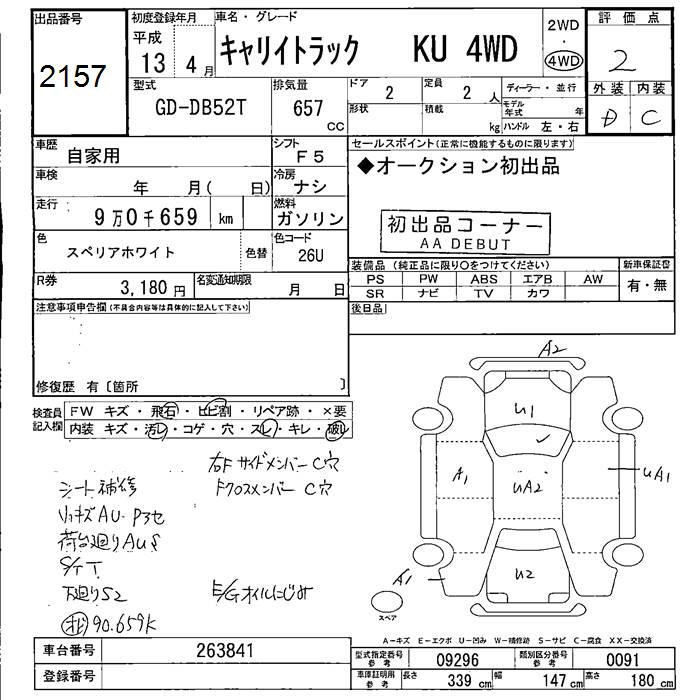 出品番号
2157
初度登録年月
平成
13 4月
車名・グレード
キャリイトラック KU 4WD
2WD
・
4WD
評価点
2
外装 内装
D C
型式
GD-DB52T
排気量
657
cc
ドア
2
定員
2 人
形状
積載
kg
ディーラー・並行
モデル年式 年
ハンドル 左・右
車歴
自家用
シフト
F5
車検
年 月( 日)
冷房
ナシ
走行
9万0千659 km
燃料
ガソリン
色
スペリアホワイト
色替
色コード
26U
R券
3,180円
名変通知期限
月 日
セールスポイント(正常に機能するものに限ります)
◆オークション初出品
初出品コーナー
AA DEBUT
装備品 (純正品に限り○をつけてください)
新車保証書
PS PW ABS エアB AW
SR ナビ TV カワ
有・無
後日品
注意事項申告欄(不具合内容等は具体的に記入して下さい)
修復歴 有〔箇所 〕
検査員記入欄
FW キズ・飛石・ヒビ割・リペア跡・×要
内装 キズ・汚レ・コゲ・穴・スレ・キレ・破レ
右Fサイドメンバー C穴
Fクロスメンバー C穴
シート補修
小キズAU・P3セ
荷台廻りAUS
S/T T
下廻りS2
E/Gオイルにじみ
90.659K
A2
U1
A1
UA2
UA1
U2
A1
スペア
A-キズ E-エクボ U-凹み W-補修跡 S-サビ C-腐食 XX-交換済
車台番号
263841
登録番号
型式指定番号
参考
09296
類別区分番号
参考
0091
車庫証明用
参考
長さ
339 cm
幅
147 cm
高さ
180 cm